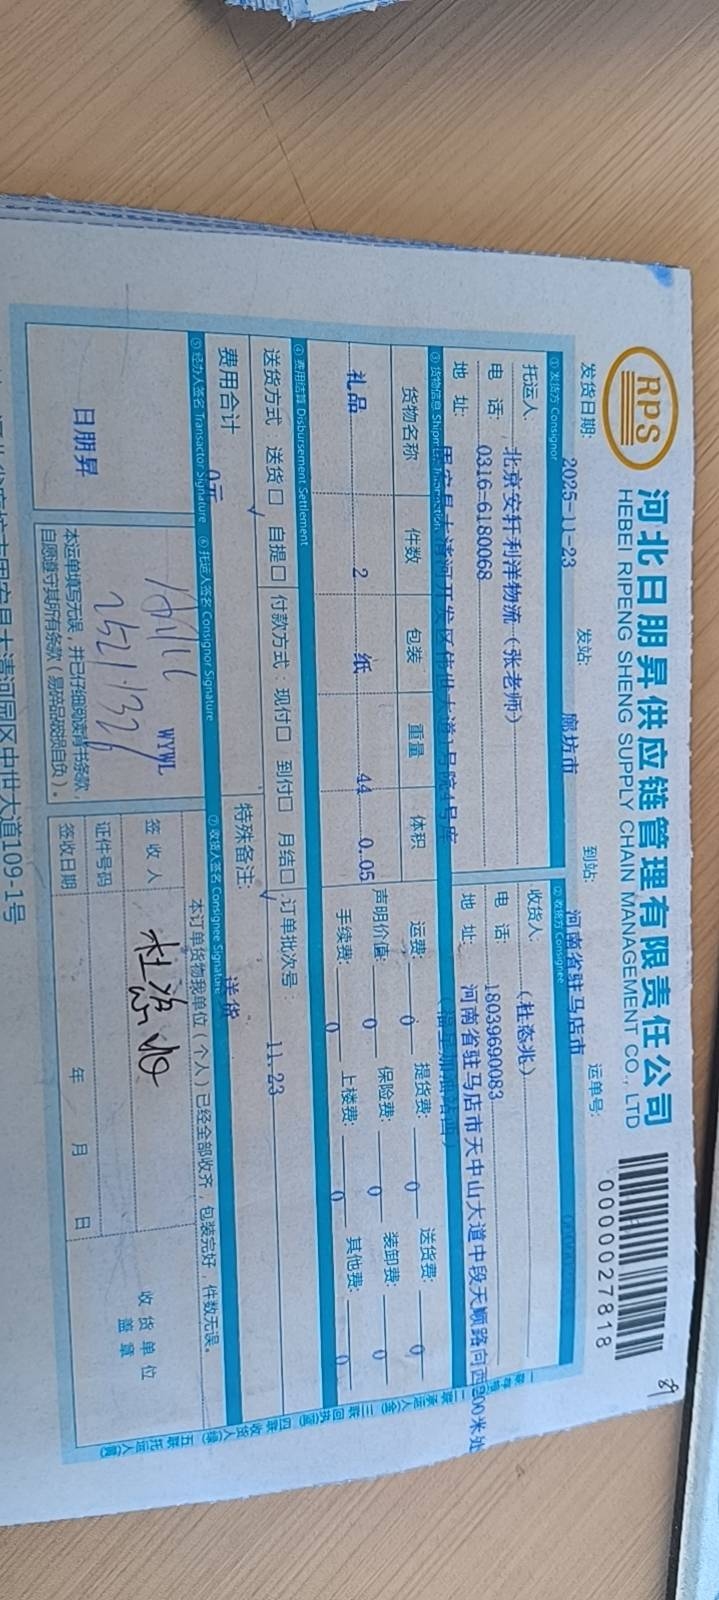 RPS
河北日朋昇供应链管理有限责任公司
HEBEI RIPENG SHENG SUPPLY CHAIN MANAGEMENT CO., LTD
0000027818
发货日期: 2025-11-23 发站: 廊坊市 到站: 河南省驻马店市 运单号:
① 发货方 Consignor ② 收货方 Consignee
托运人: 北京安轩利洋物流（张老师） 收货人:
电 话: 0316-6180068 电 话: 18039690083
地 址: 地 址: 河南省驻马店市天中山大道中段天顺路向西200米处
③ 货物信息
货物名称 件数 包装 重量 体积 运费: 0 提货费: 0 送货费: 0
礼品 2 纸 44 0.05 声明价值: 0 保险费: 0 装卸费: 0
手续费: 0 上楼费: 0 其他费: 0
④ 费用结算 Disbursement Settlement
送货方式: 送货□ 自提□ 付款方式: 现付□ 到付□ 月结□ 订单批次号: 11.23
费用合计 0元 特殊备注: 送货
⑤ 经办人签名 Transactor Signature ⑥ 托运人签名 Consignor Signature ⑦ 收货人签名 Consignee Signature
日朋昇
WYWL
本运单填写无误，并已仔细阅读背书条款，
自愿遵守其所有条款（易碎品破损自负）。
本订单货物我单位（个人）已经全部收齐，包装完好，件数无误。
签 收 人
证件号码
签收日期 年 月 日
收 货 单 位
盖 章
二联承运人
三联回执
四联收货人
五联托运人
大清河园区中世大道109-1号